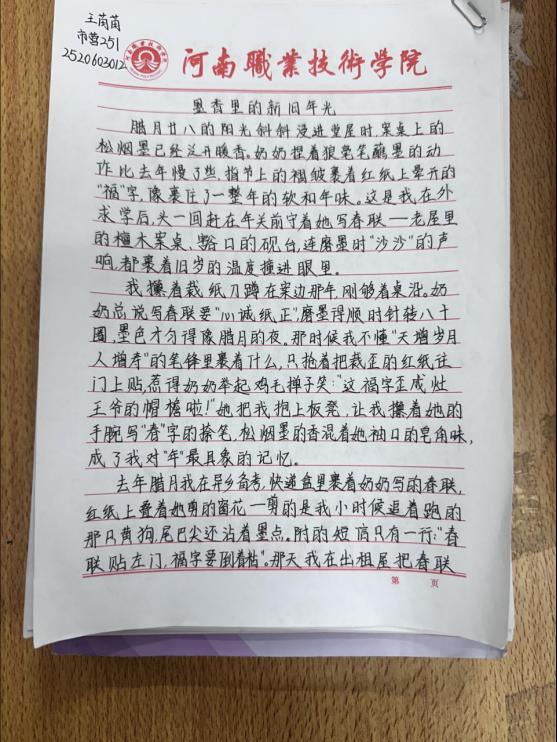 王苘苗
市营251
2520603012
河南職業技術學院
墨香里的新旧年光
腊月廿八的阳光斜斜浸进堂屋时，案桌上的
松烟墨已经泛开暖香。奶奶捏着狼毫笔蘸墨的动
作比去年慢了些，指节上的褶皱裹着红纸上晕开的
“福”字，像裹住了一整年的软和年味。这是我在外
求学后，头一回赶在年关前守着她写春联——老屋里
的檀木案桌、豁口的砚台，连磨墨时“沙沙”的声
响，都裹着旧岁的温度撞进眼里。
我攥着裁纸刀蹲在案边那年，刚够着桌沿。奶
奶总说写春联要“心诚纸正”，磨墨得顺时针转八十
圈，墨色才匀得像腊月的夜。那时候我不懂“天增岁月
人增寿”的笔锋里裹着什么，只抢着把裁歪的红纸往
门上贴，惹得奶奶举起鸡毛掸子笑：“这福字歪成灶
王爷的帽檐啦！”她把我抱上板凳，让我攥着她的
手腕写“春”字的捺笔，松烟墨的香混着她袖口的皂角味，
成了我对“年”最具象的记忆。
去年腊月我在异乡备考，快递盒里裹着奶奶写的春联，
红纸上叠着她剪的窗花一剪的是我小时候追着跑的
那只黄狗，尾巴尖还沾着墨点。附的短信只有一行：“春
联贴左门，福字要倒着粘”。那天我在出租屋把春联
第 页